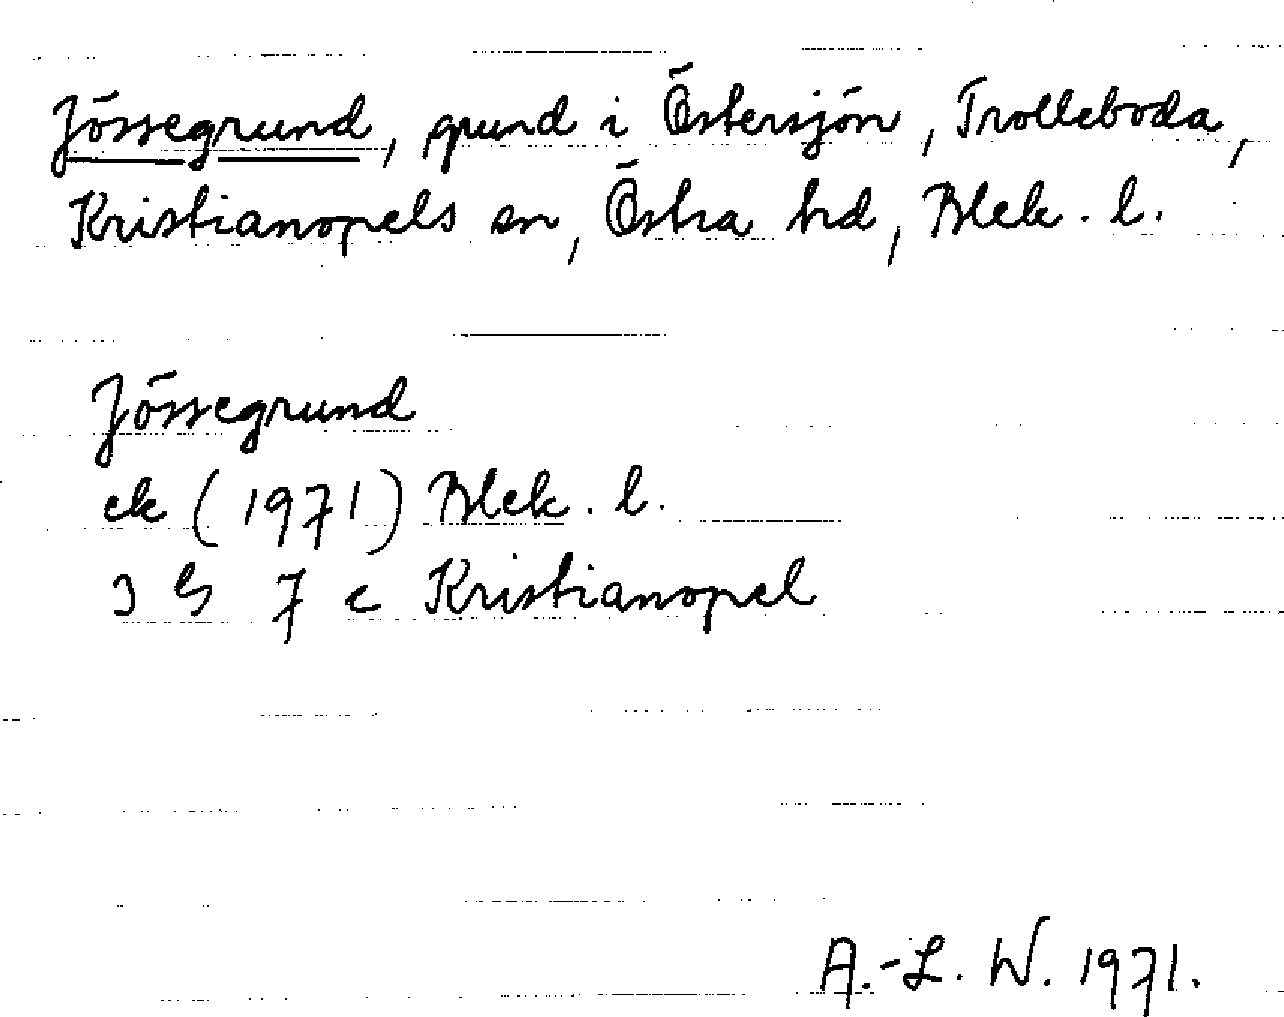 Jössegrund, grund i Östersjön, Trolleboda,
Kristianopels sn, Östra hd, Blek. l.
Jössegrund
ek (1971) Blek. l.
3 G 7 c Kristianopel
A.-L. W. 1971.